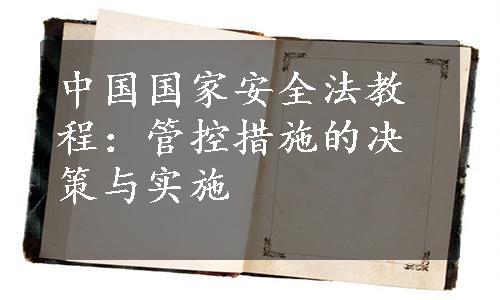 中国国家安全法教
程：管控措施的决
策与实施